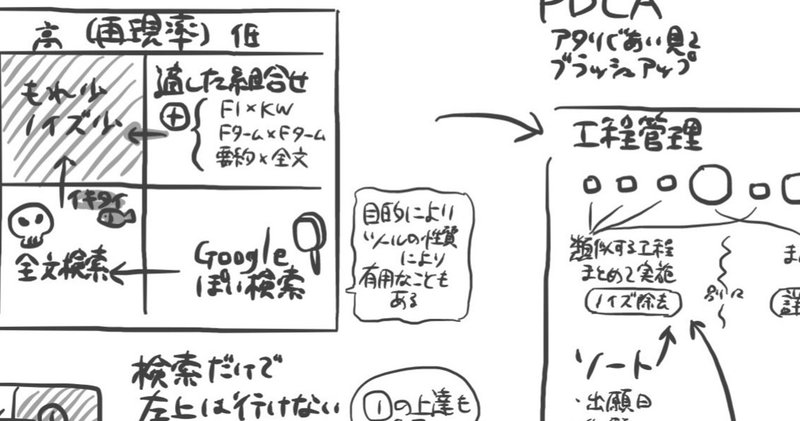 高 (再現率) 低
もれ少
ノイズ少
適した組合せ
+
FI×KW
Fターム×Fターム
要約×全文
イキタイ
全文検索
Google
ぽい検索
目的により
ツールの性質
により
有用なことも
ある
検索だけで
左上は行けない
①の上達も
PDCA
アタリであい見て
ブラッシュアップ
工程管理
類似する工程
まとめて実施
ノイズ除去
ソート
・出願日